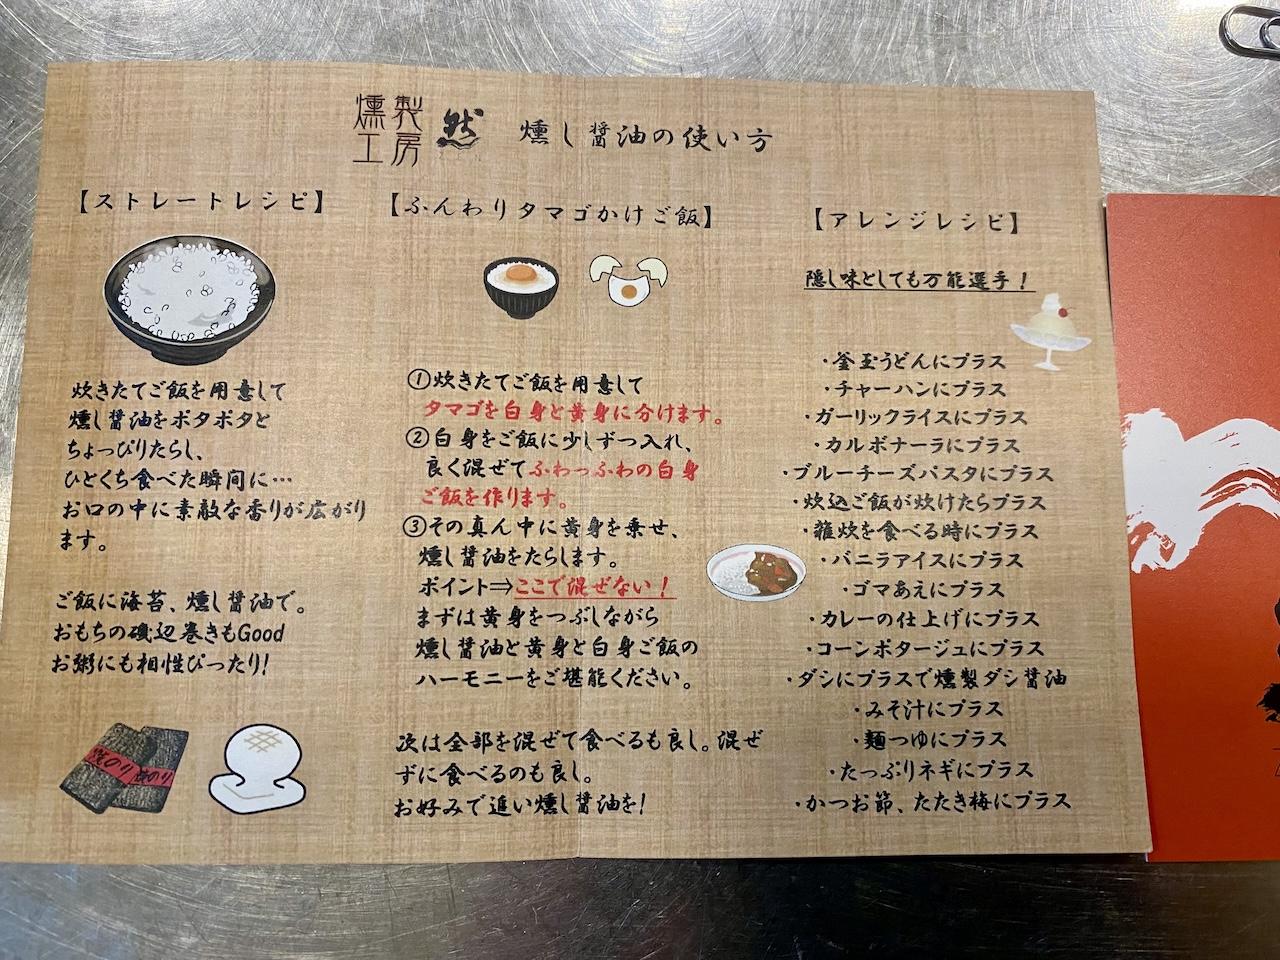 燻製
工房
然
燻し醤油の使い方
【ストレートレシピ】
炊きたてご飯を用意して
燻し醤油をポタポタと
ちょっぴりたらし、
ひとくち食べた瞬間に…
お口の中に素敵な香りが広がり
ます。
ご飯に海苔、燻し醤油で。
おもちの磯辺巻きもGood
お粥にも相性ぴったり!
焼のり
焼のり
【ふんわりタマゴかけご飯】
①炊きたてご飯を用意して
タマゴを白身と黄身に分けます。
②白身をご飯に少しずつ入れ、
良く混ぜてふわっふわの白身
ご飯を作ります。
③その真ん中に黄身を乗せ、
燻し醤油をたらします。
ポイント⇒ここで混ぜない!
まずは黄身をつぶしながら
燻し醤油と黄身と白身ご飯の
ハーモニーをご堪能ください。
次は全部を混ぜて食べるも良し。混ぜ
ずに食べるのも良し。
お好みで追い燻し醤油を!
【アレンジレシピ】
隠し味としても万能選手!
・釜玉うどんにプラス
・チャーハンにプラス
・ガーリックライスにプラス
・カルボナーラにプラス
・ブルーチーズパスタにプラス
・炊込ご飯が炊けたらプラス
・雑炊を食べる時にプラス
・バニラアイスにプラス
・ゴマあえにプラス
・カレーの仕上げにプラス
・コーンポタージュにプラス
・ダシにプラスで燻製ダシ醤油
・みそ汁にプラス
・麺つゆにプラス
・たっぷりネギにプラス
・かつお節、たたき梅にプラス